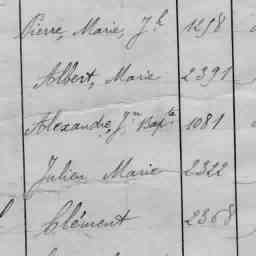 Pierre, Marie, Jh 1258
Albert, Marie 2391
Alexandre, Jn Bapte 1081
Julien Marie 2322
Clément 2368